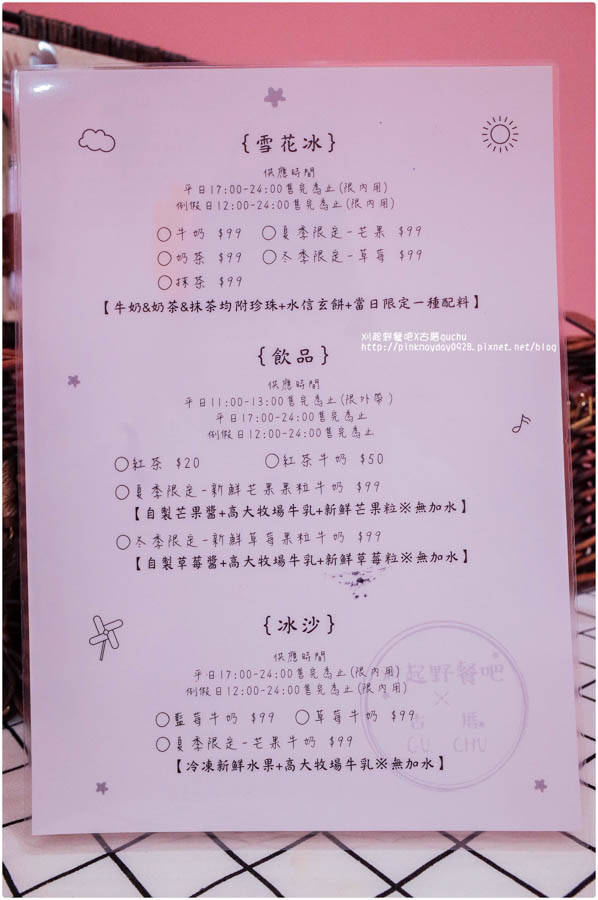 {雪花冰}
供應時間
平日17:00-24:00售完為止(限內用)
例假日12:00-24:00售完為止(限內用)
○牛奶 $99 ○夏季限定-芒果 $99
○奶茶 $99 ○冬季限定-草莓 $99
○抹茶 $99
【牛奶&奶茶&抹茶均附珍珠+水信玄餅+當日限定一種配料】
刈起野餐吧X古厝guchu
http://pinkmayday0928.pixnet.net/blog
{飲品}
供應時間
平日11:00-13:00售完為止(限外帶)
平日17:00-24:00售完為止
例假日12:00-24:00售完為止
○紅茶 $20 ○紅茶牛奶 $50
○夏季限定-新鮮芒果果粒牛奶 $99
【自製芒果醬+高大牧場牛乳+新鮮芒果粒※無加水】
○冬季限定-新鮮草莓果粒牛奶 $99
【自製草莓醬+高大牧場牛乳+新鮮草莓粒※無加水】
{冰沙}
供應時間
平日17:00-24:00售完為止(限內用)
例假日12:00-24:00售完為止(限內用)
○藍莓牛奶 $99 ○草莓牛奶 $99
○夏季限定-芒果牛奶 $99
【冷凍新鮮水果+高大牧場牛乳※無加水】
起野餐吧
×
古厝
GU CHU